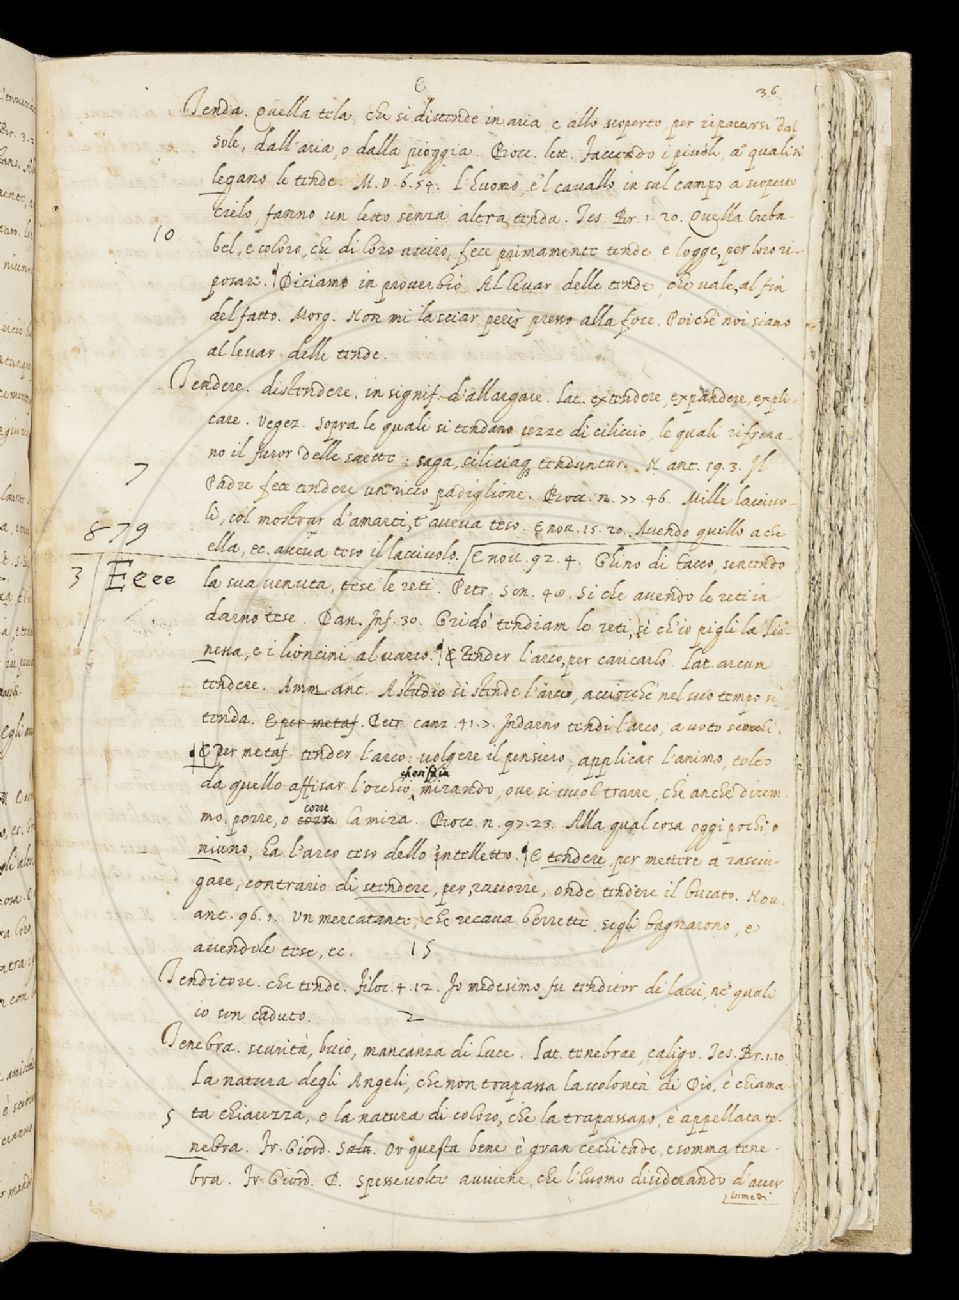 36
Tenda. Quella tela, che si distende in aria e allo scoperto, per ripararsi dal
sole, dall'aria, o dalla pioggia. Bocc. lett. Facendo i pivoli, a' quali si
legano le tende. M. V. 6. 54. L'huomo, e'l cavallo in sul campo a scoperto
cielo, fanno un letto senza altra tenda. Tes. Br. 1. 20. Quella Zeba-
10
bel, e coloro, che di loro usciro, fece primamente tende e logge, per loro ri-
posare. ¶ Diciamo in proverbio Al levar delle tende, che vale, al fin
del fatto. Morg. Non mi lasciar perir presso alla foce, Poichè noi siano
al levar delle tende.
Tendere. distendere, in signif. d'allargare. lat. extendere, expandere, expli-
care. Vegez. Sopra le quali si tendano pezze di ciliccio, le quali rifrena-
no il furor delle saette: saga, ciliciaq. tenduntur. N. ant. 19. 3. Il
7
Padre fece tendere un ricco padiglione. Bocc. n. 77. 46. Mille lacciuo-
li, col mostrar d'amarti, t'aveva teso. E nov. 15. 20. Avendo quello a che
879
ella, ec. aveva teso il lacciuolo. E nov. 92. 4. Ghino di tacco, sentendo
3 Eeee
la sua venuta, tese le reti. Petr. Son. 40. Si che avendo le reti in-
darno tese. Dan. Inf. 30. Gridò tendiam le reti, sì ch'io pigli la Lio-
nessa, e i lioncini al varco. ¶ E tender l'arco, per caricarlo. Lat. arcum
tendere. Amm. ant. A studio si stende l'arco, acciocchè nel suo tempo si
tenda. E per metaf. Petr. canz. 41. 7. Indarno tendi l'arco, a voto scocchi.
¶ E per metaf. tender l'arco: volgere il pensiero, applicar l'animo, tolto
da quello affisar l'occhio, mirando, ove si vuol trarre, che anche direm-
corre
mo, porre, o corre la mira. Bocc. n. 97. 23. Alla qual cosa oggi pochi, o
niuno, ha l'arco teso dello intelletto. ¶ E tendere, per mettere a rasciu-
gare, contrario di stendere, per, ravorre, onde tendere il bucato. Nov.
ant. 96. 1. Un mercatante, che recava berrette, segli bagnarono, e
avendole tese, ec. 15
Tenditore. che tende. Filoc. 4. 12. Io medesimo fu tenditor de' lacci, ne' quali
io son caduto. 2
Tenebra. scurità, buio, mancanza di luce. Lat. tenebrae, caligo. Tes. Br. 1. 10
La natura degli Angeli, che non trapassa la volontà di Dio, è chiama-
5 ta chiarezza, e la natura di coloro, che la trapassano, è appellata te-
nebra. Fr. Giord. Salv. Or questa bene è gran cechitade, e somma tene-
bra. Fr. Giord. D. Spesse volte avviene, che l'huomo disiderando d'aver
lume di